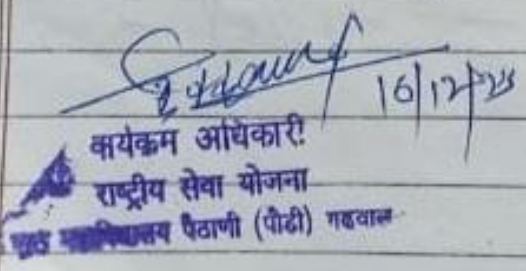 16/12/23
कार्यक्रम अधिकारी
राष्ट्रीय सेवा योजना
महाविद्यालय पैठाणी (पौडी) गढवाल